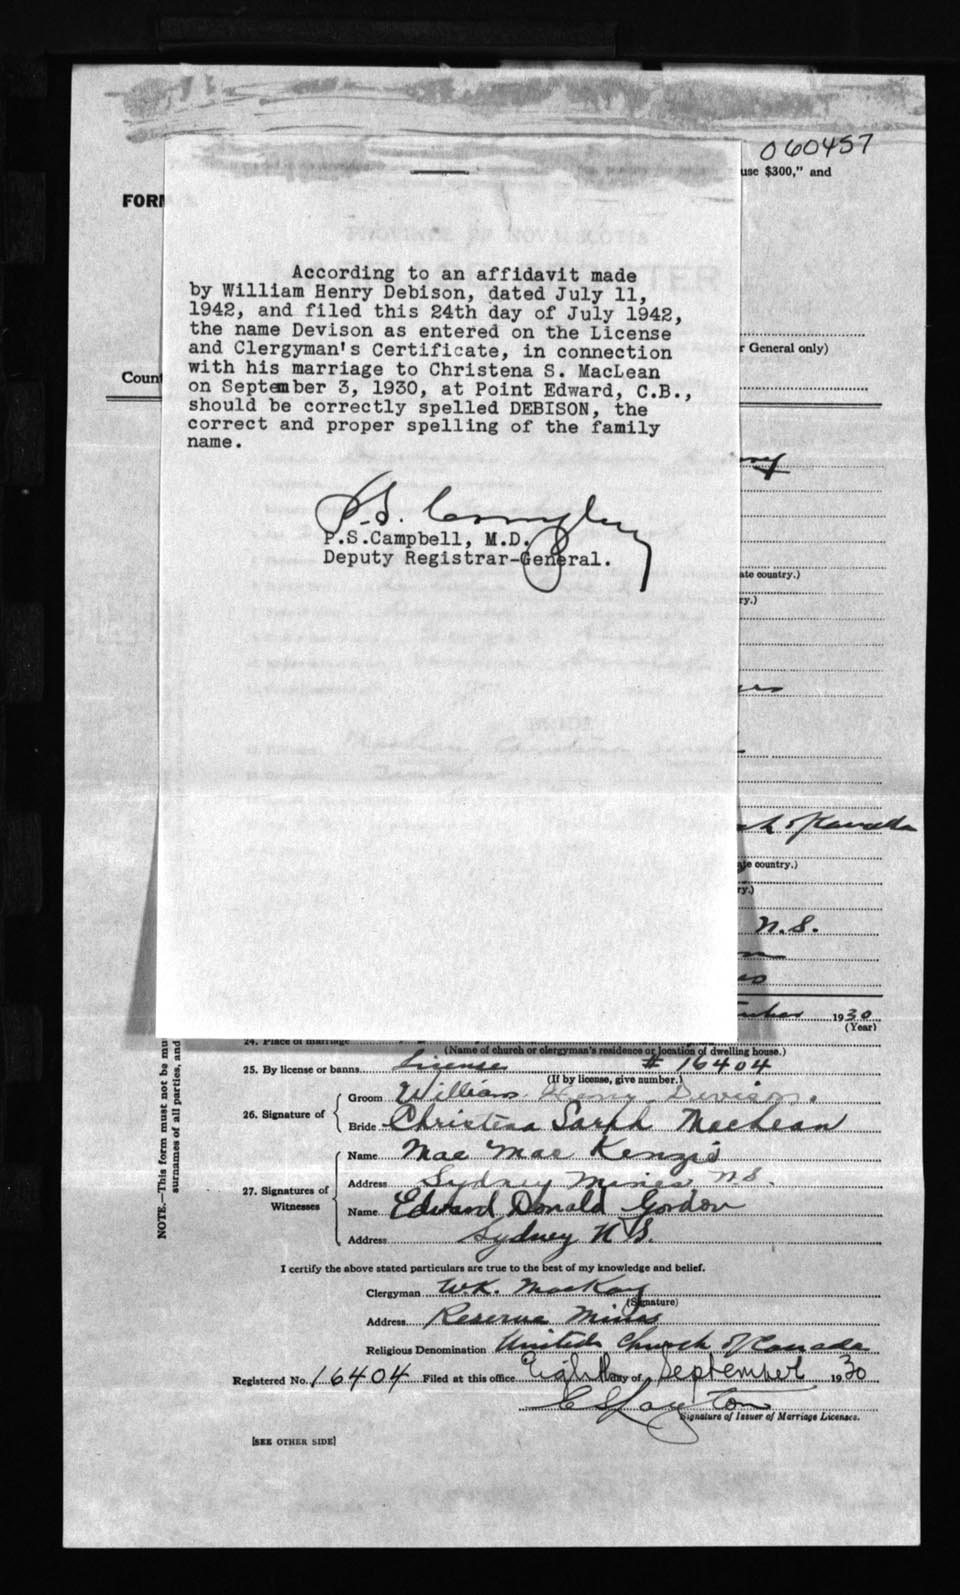 060457
use $300," and
FORM
According to an affidavit made
by William Henry Debison, dated July 11,
1942, and filed this 24th day of July 1942,
the name Devison as entered on the License
and Clergyman's Certificate, in connection
with his marriage to Christena S. MacLean
on September 3, 1930, at Point Edward, C.B.,
should be correctly spelled DEBISON, the
correct and proper spelling of the family
name.
P.S.Campbell, M.D.
Deputy Registrar-General.
r General only)
Count
ate country.)
ry.)
h of Canada
ate country.)
ry.)
N.S.
1930
(Year)
24. Place of marriage
(Name of church or clergyman's residence or location of dwelling house.)
25. By license or banns License # 16404
(If by license, give number.)
26. Signature of
Groom William Henry Devison.
Bride Christena Sarah MacLean
27. Signatures of Witnesses
Name Mae MacKenzie
Address Sydney Mines N.S.
Name Edward Donald Gordon
Address Sydney N.S.
I certify the above stated particulars are true to the best of my knowledge and belief.
Clergyman W.K. MacKay
(Signature)
Address Reserve Mines
Religious Denomination United Church of Canada
Registered No. 16404 Filed at this office Eighth day of September 1930
Signature of Issuer of Marriage Licenses.
[SEE OTHER SIDE]
NOTE.—This form must not be mu
surnames of all parties, and